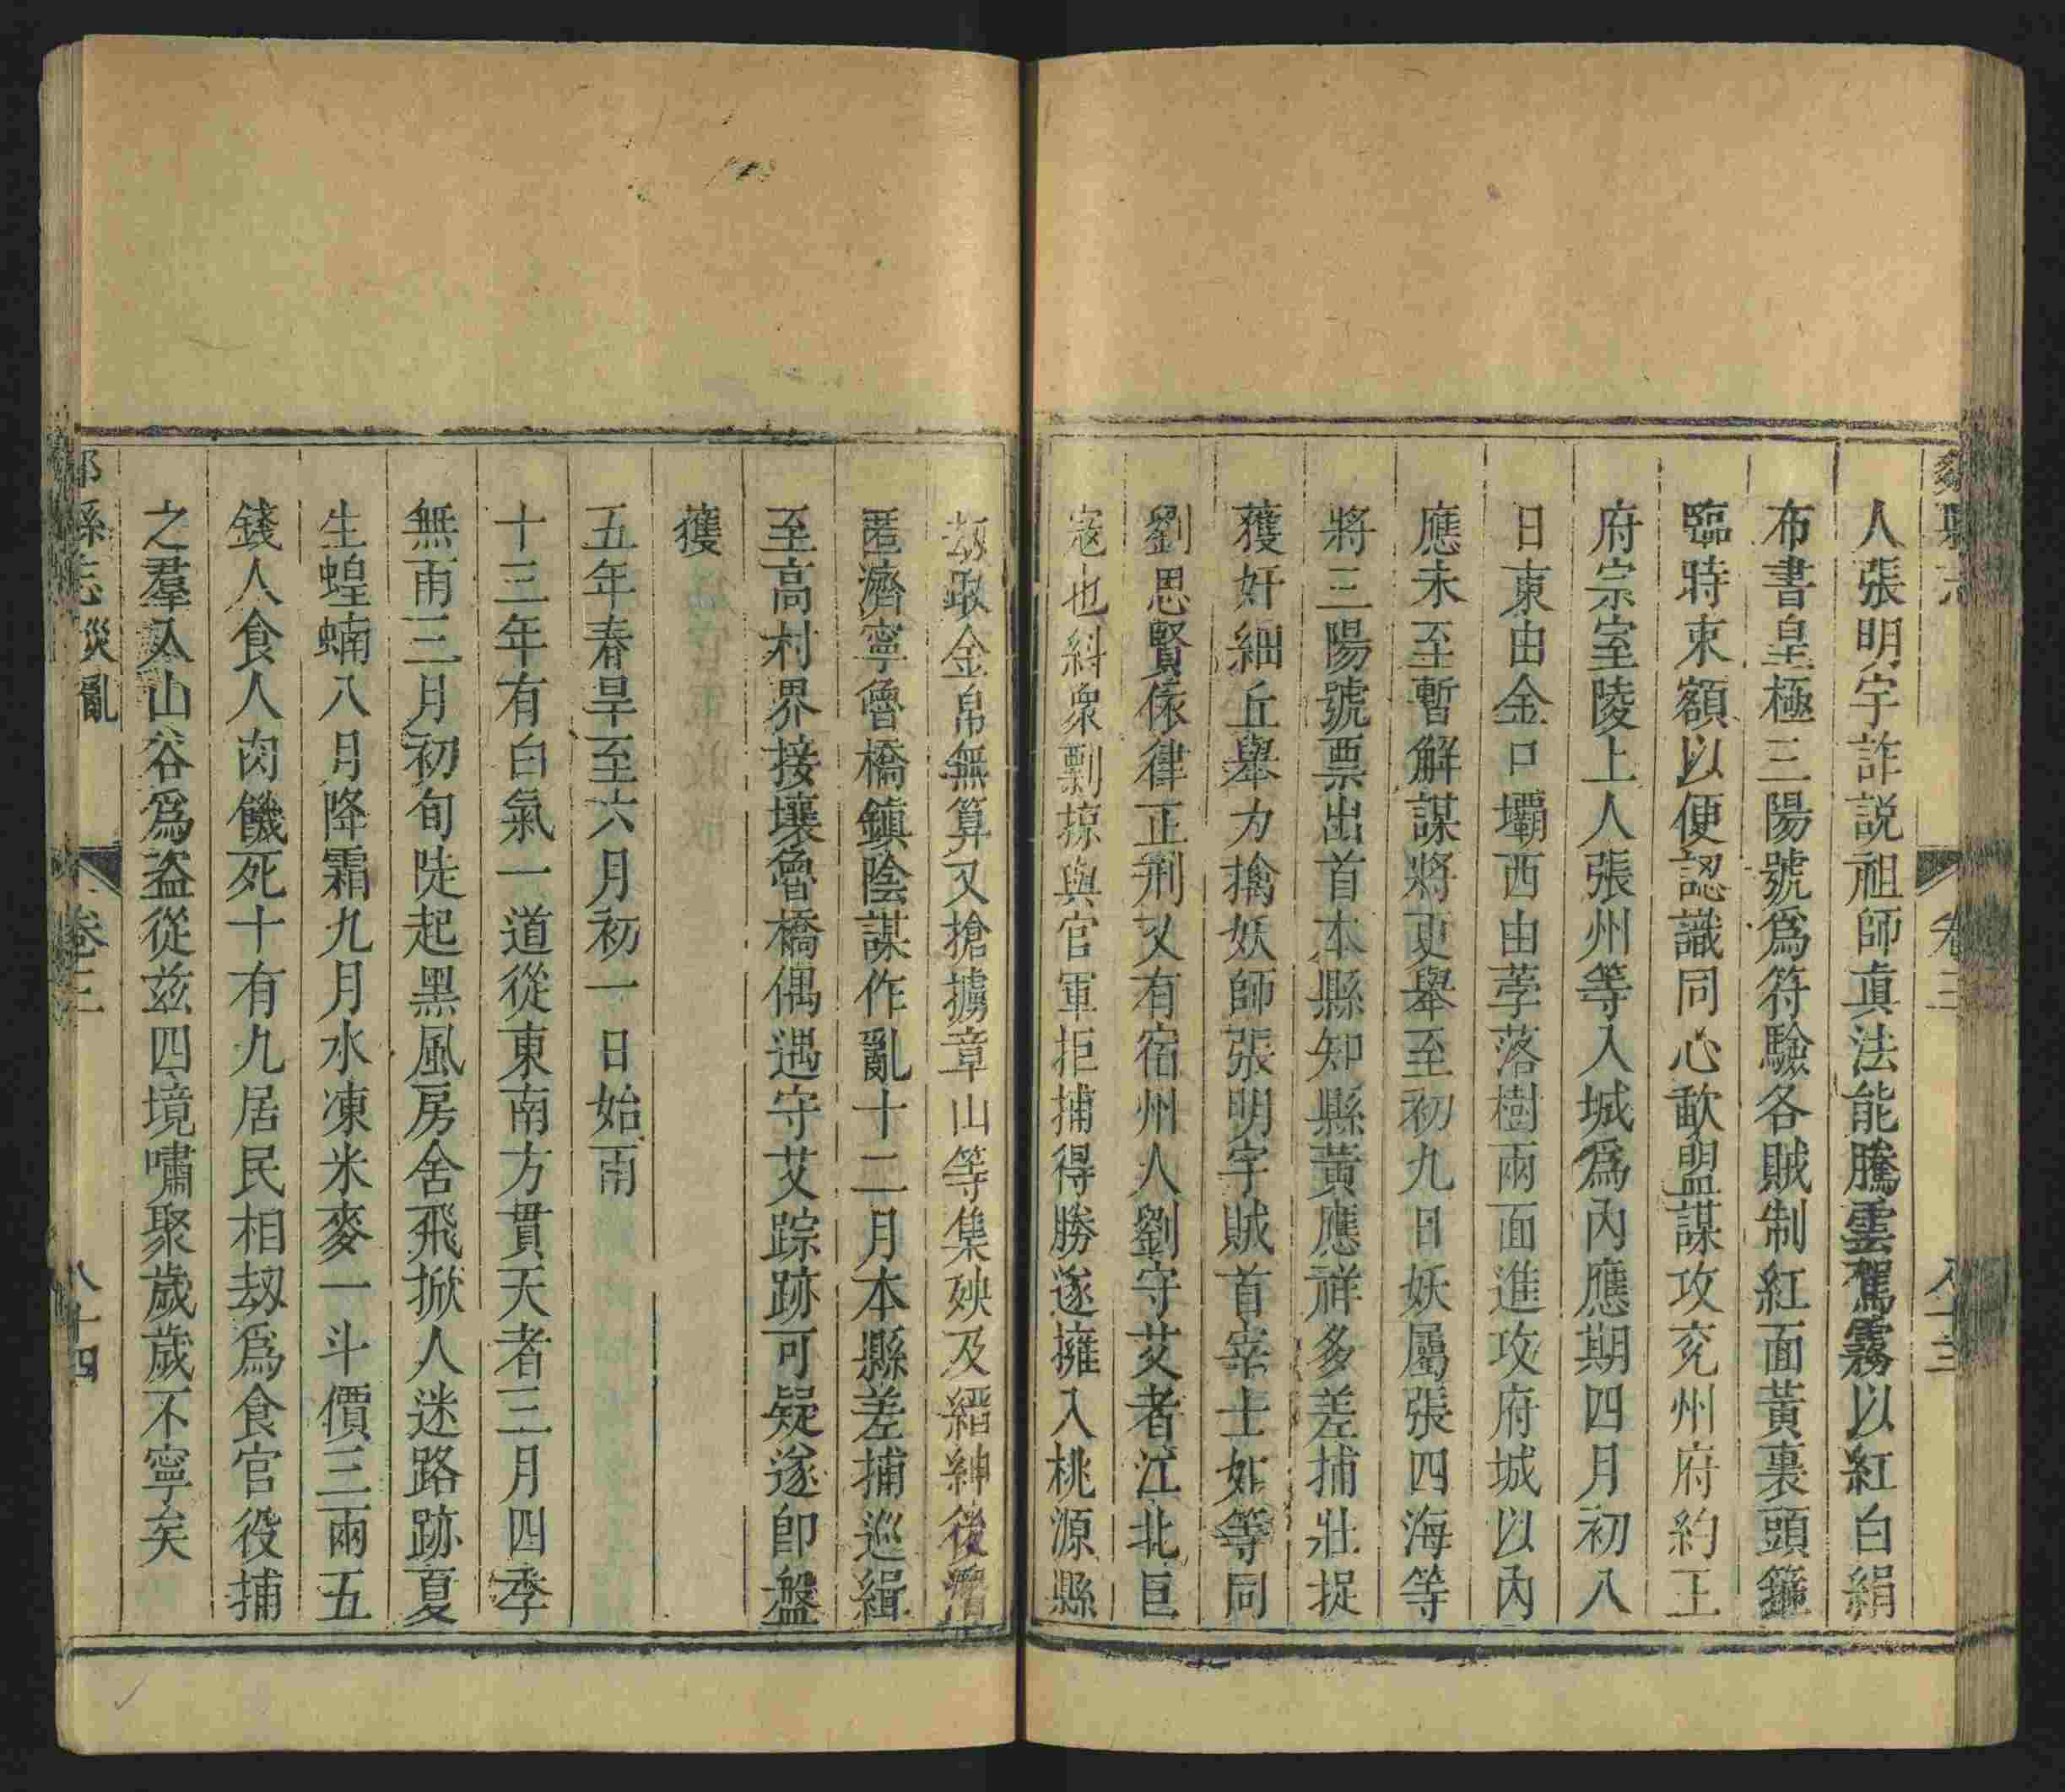 卷三
人張明宇詐説祖師真法能騰雲駕霧以紅白絹
布書皇極三陽號爲符驗各賊制紅面黃裏頭箍
臨時束額以便認識同心歃盟謀攻兖州府約王
府宗室陵上人張州等入城爲內應期四月初八
日東由金口壩西由荸落樹兩面進攻府城以內
應未至暫解謀將更舉至初九日妖屬張四海等
將三陽號票出首本縣知縣黃應祥多差捕壯捉
獲奸細丘舉力擒妖師張明宇賊首宰士如等同
劉思賢依律正刑又有宿州人劉守艾者江北巨
寇也糾衆剽掠與官軍拒捕得勝遂擁入桃源縣
刼政金帛無算又搶擄章山等集殃及縉紳後潛
匿濟寧魯橋鎮陰謀作亂十二月本縣差捕巡緝
至高村界接壤魯橋偶遇守艾踪跡可疑遂卽盤
獲
五年春旱至六月初一日始雨
十三年有白氣一道從東南方貫天者三月四季
無雨三月初旬陡起黑風房舍飛掀人迷路跡夏
生蝗蝻八月降霜九月水凍米麥一斗價三兩五
錢人食人肉饑死十有九居民相刼爲食官役捕
之羣入山谷爲盜從兹四境嘯聚歲歲不寧矣
縣志 災亂 卷三 八十四